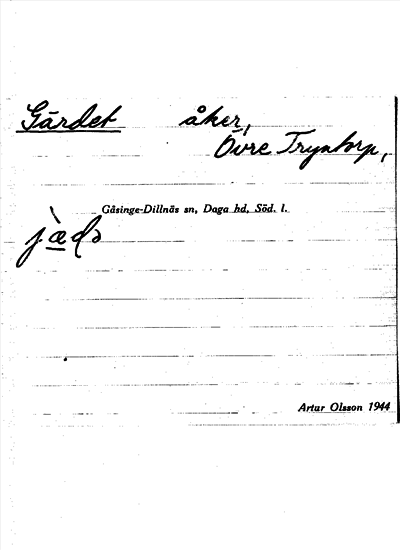 Gärdet åker,
Övre Tryntorp,
Gåsinge-Dillnäs sn, Daga hd, Söd. l.
jæ̀də
Artur Olsson 1944